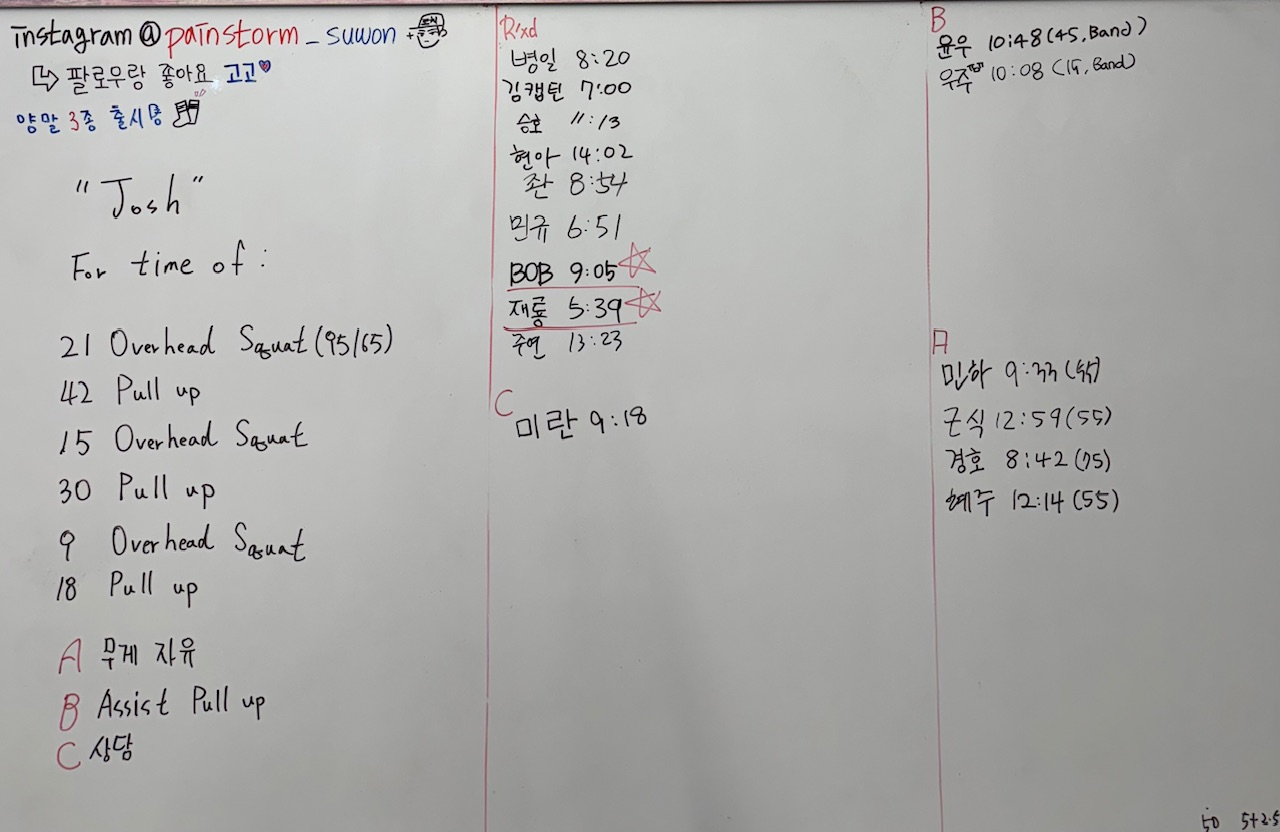 instagram @painstorm_suwon
팔로우랑 좋아요 고고
양말 3종 출시
"Josh"
For time of :
21 Overhead Squat (95/65)
42 Pull up
15 Overhead Squat
30 Pull up
9 Overhead Squat
18 Pull up
A 무게 자유
B Assist Pull up
C 상담
R'xd
병일 8:20
김캡틴 7:00
승호 11:13
현아 14:02
좐 8:54
민규 6:51
BOB 9:05
재룡 5:39
주연 13:23
C
미란 9:18
B
윤우 10:48 (45, Band)
우주 10:08 (15, Band)
A
민하 9:33
근식 12:59 (55)
경호 8:42 (75)
혜주 12:14 (55)
50 5+2.5